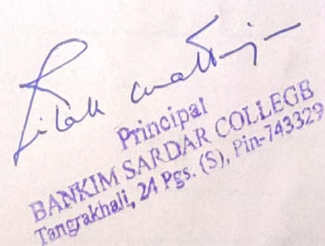 Tilak
Principal
BANKIM SARDAR COLLEGE
Tangrakhali, 24 Pgs. (S), Pin-743329